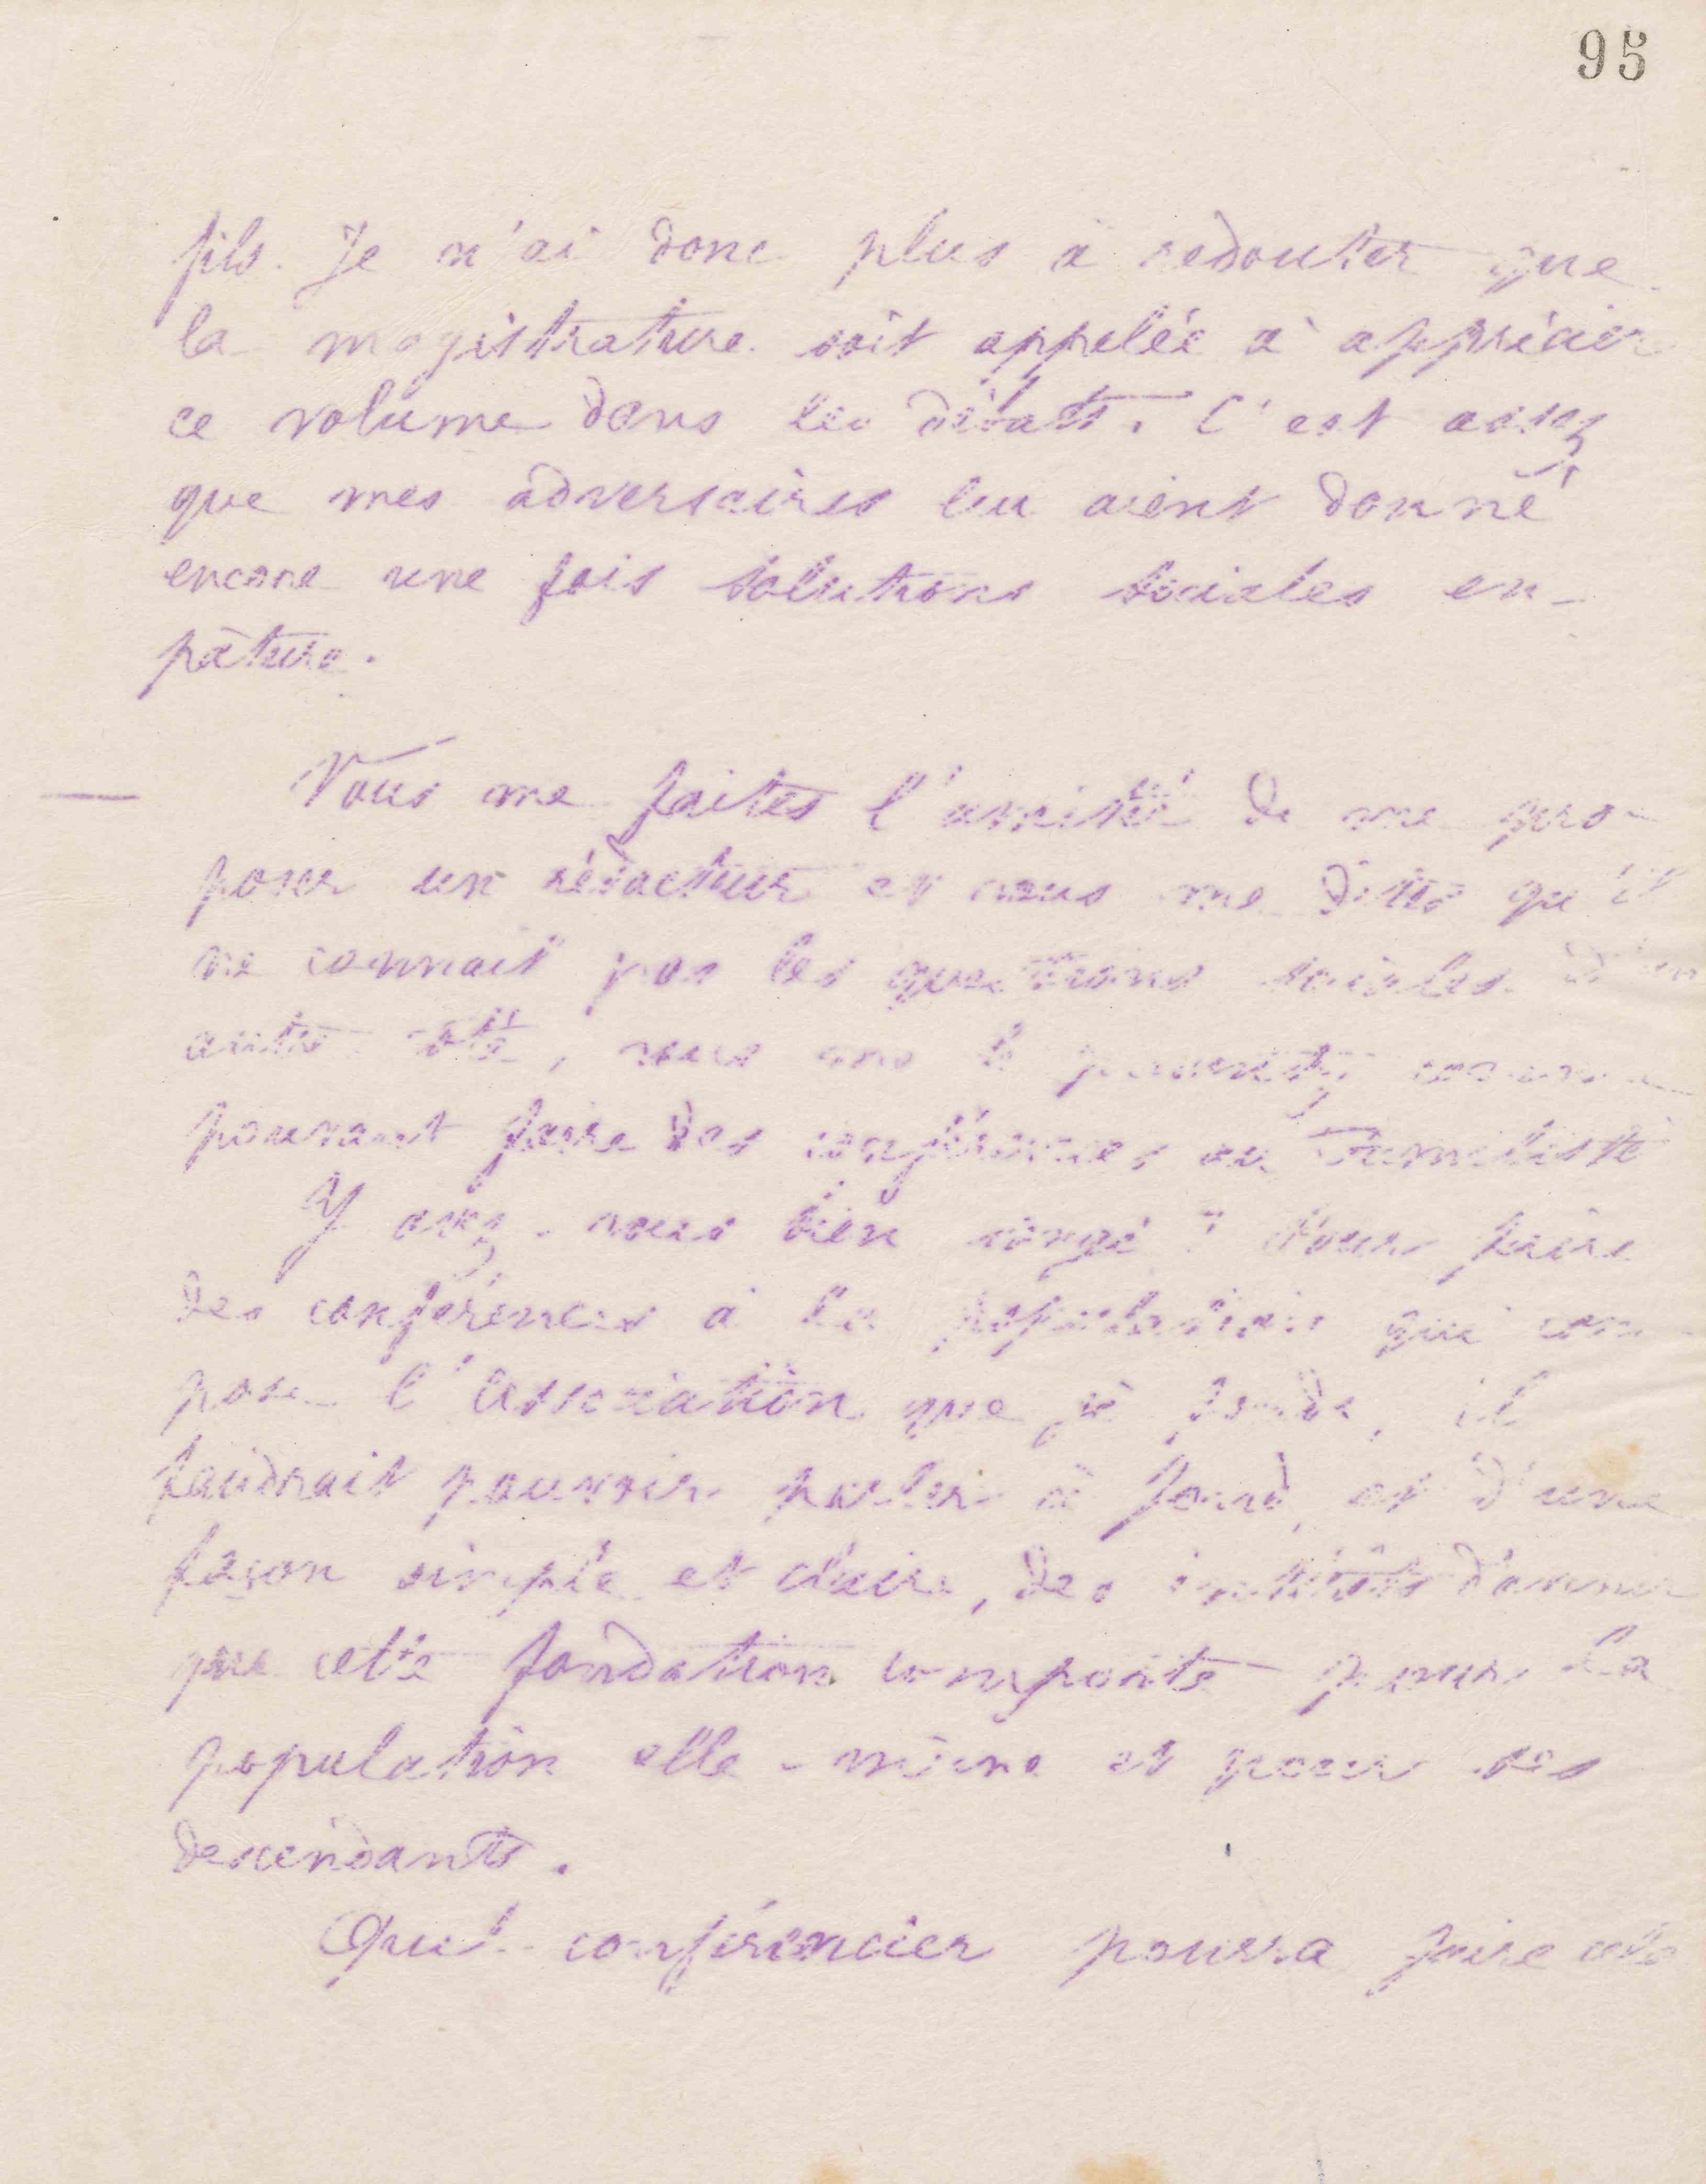 95
fils. Je n'ai donc plus à redouter que
la magistrature soit appelée à apprécier
ce volume dans les débats. C'est assez
que mes adversaires lui aient donné
encore une fois solutions sociales en
pâture.
Vous me faites l'amitié de me pro-
poser un rédacteur et vous me dites qu'il
ne connait pas les questions sociales. D'un
autre côté, vous me le présentez comme
pouvant faire des conférences au Familistère
Y avez-vous bien songé ? Pour faire
des conférences à la population qui com
pose l'association que je fonde, il
faudrait pouvoir parler à fond, et d'une
façon simple et claire, des intérêts d'avenir
que cette fondation comporte pour la
population elle-même et pour ses
descendants.
Quel conférencier pourra faire cela